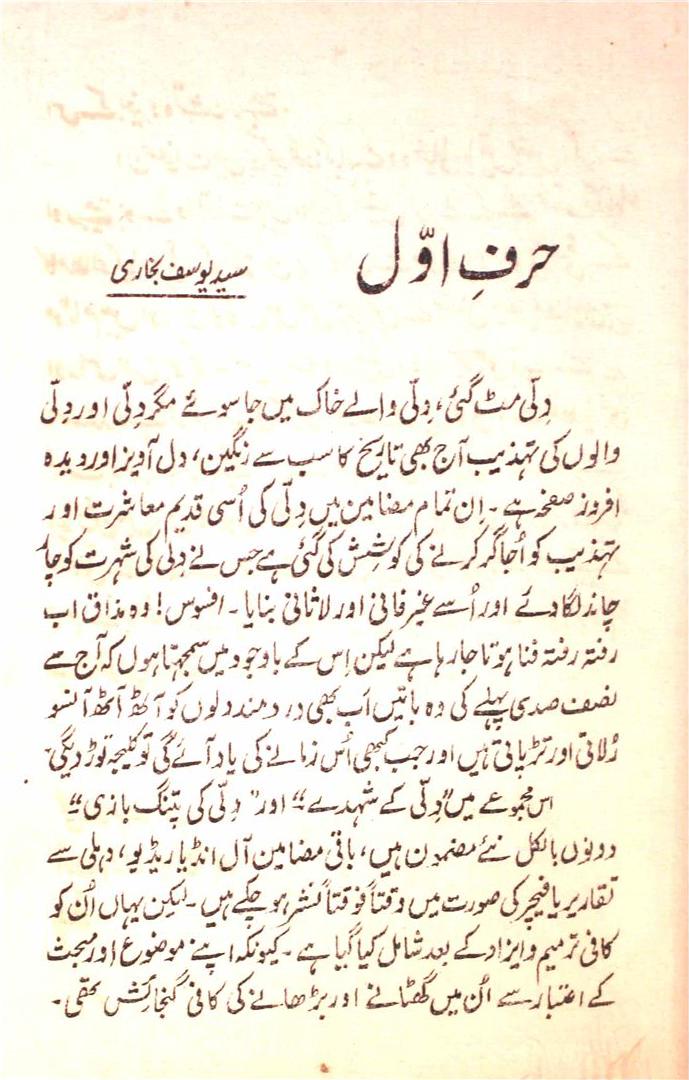 حرفِ اوّل
سید یوسف بخاری
دِلّی مٹ گئی، دِلّی والے خاک میں جا سوئے مگر دِلّی اور دِلّی
والوں کی تہذیب آج بھی تاریخ کا سب سے رنگین، دل آویز اور دیدہ
افروز صفحہ ہے۔ اِن تمام مضامین میں دِلّی کی اُسی قدیم معاشرت اور
تہذیب کو اُجاگر کرنے کی کوشش کی گئی ہے جس نے دِلّی کی شہرت کو چار
چاند لگا دئے اور اُسے غیر فانی اور لاثانی بنایا۔ افسوس! وہ مذاق اب
رفتہ رفتہ فنا ہوتا جا رہا ہے لیکن اِس کے باوجود میں سمجہتا ہوں کہ آج سے
نصف صدی پہلے کی وہ باتیں اَب بھی درد مند دلوں کو آٹھ آٹھ آنسو
رُلاتی اور تڑپاتی ہیں اور جب کبھی اُس زمانے کی یاد آئے گی تو کلیجہ توڑ دیگی۔
اس مجموعے میں "دِلّی کے شہدے" اور "دِلّی کی پتنگ بازی"
دونوں بالکل نئے مضمون ہیں، باقی مضامین آل انڈیا ریڈیو، دہلی سے
تقاریر یا فیچر کی صورت میں وقتاً فوقتاً نشر ہو چکے ہیں۔ لیکن یہاں اُن کو
کافی ترمیم و ایزاد کے بعد شامل کیا گیا ہے۔ کیونکہ اپنے موضوع اور مبحث
کے اعتبار سے اُن میں گھٹانے اور بڑھانے کی کافی گنجائش تھی۔